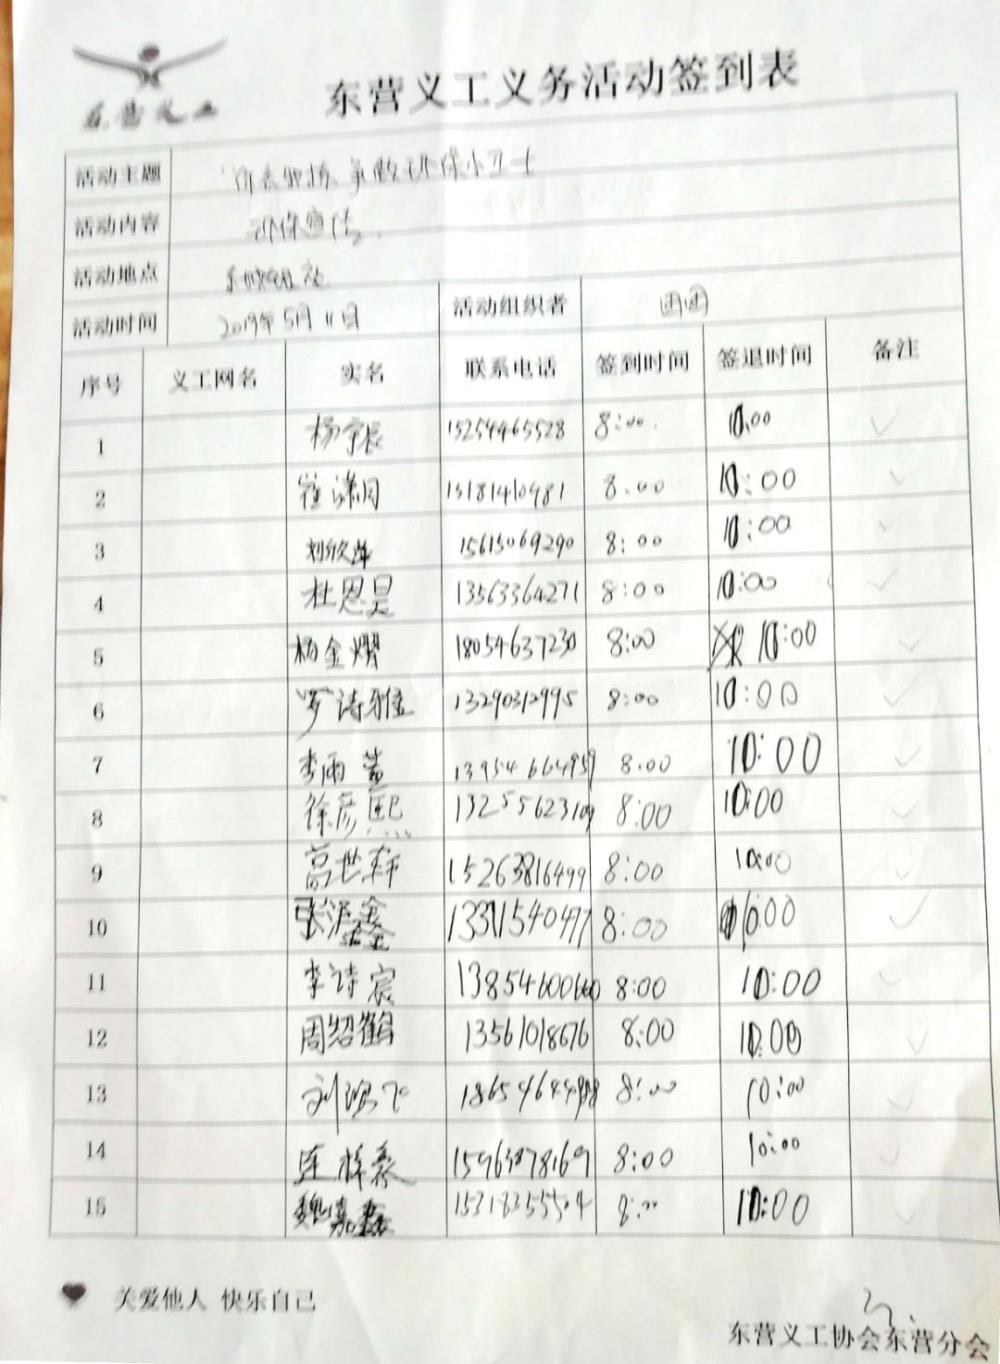 东营义工
东营义工义务活动签到表
活动主题 争做环保小卫士
活动内容 环保宣传
活动地点
活动时间 2019年5月11日 活动组织者
序号 义工网名 实名 联系电话 签到时间 签退时间 备注
1 杨宇辰 15254465528 8:00 10.00 ✓
2 崔潇月 15181410981 8.00 10:00 ✓
3 刘欣萍 15615069290 8:00 10:00 ✓
4 杜恩昊 13563364271 8:00 10:00 ✓
5 杨金熠 18054637230 8:00 10:00 ✓
6 罗诗雅 13290312995 8:00 10:00 ✓
7 李雨 13954664959 8.00 10:00 ✓
8 徐彦熙 13255623109 8:00 10:00 ✓
9 高世轩 15263816499 8:00 10:00 ✓
10 张涵鑫 13311540477 8:00 10:00 ✓
11 李诗宸 13854600660 8:00 10:00 ✓
12 周绍鹤 13561018676 8:00 10.00 ✓
13 刘鸿飞 8:00 10:00 ✓
14 连梓森 15963878169 8:00 10:00 ✓
15 魏嘉鑫 15318355504 8:00 10:00 ✓
关爱他人 快乐自己
东营义工协会东营分会